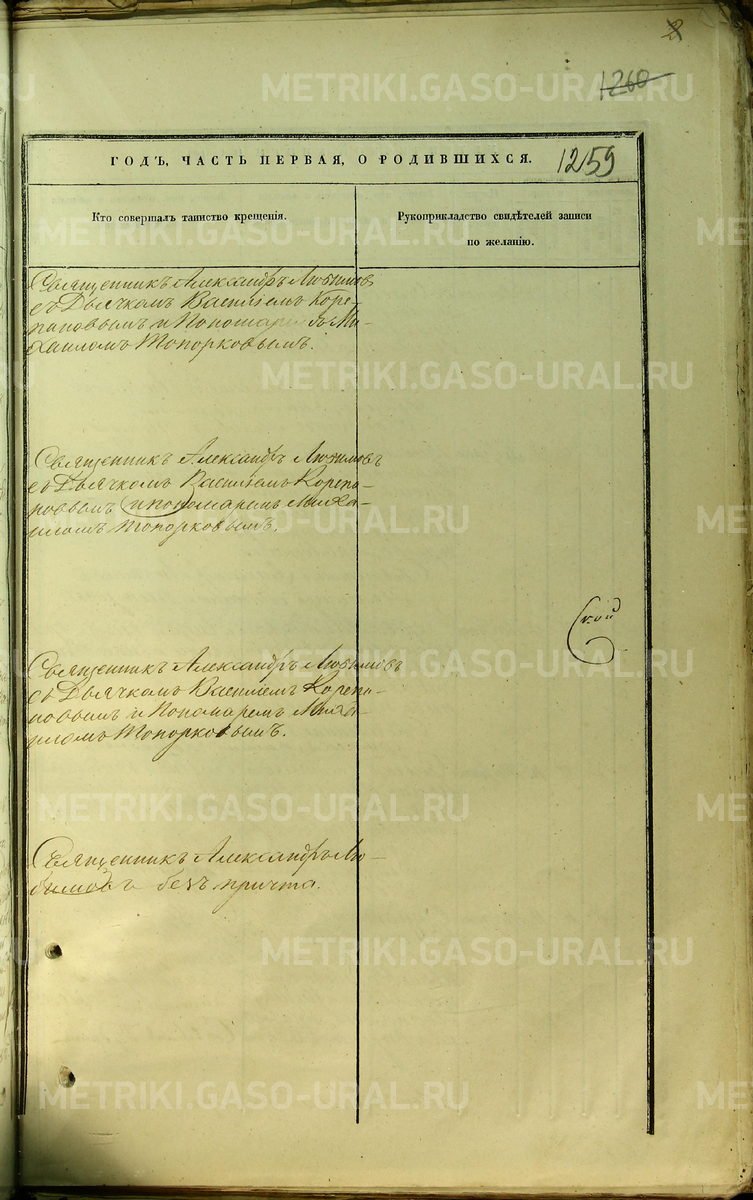 1260
1259
ГОДЪ, ЧАСТЬ ПЕРВАЯ, О РОДИВШИХСЯ.
Кто совершалъ таинство крещенія.
Рукоприкладство свидѣтелей записи
по желанію.
Священникъ Александръ Любимовъ
съ Дьячкомъ Василіемъ Коре-
пановымъ и Пономаремъ Ми-
хаиломъ Топорковымъ.
Священникъ Александръ Любимовъ
съ Дьячкомъ Василіемъ Корепа-
новымъ и пономаремъ Миха-
иломъ Топорковымъ.
ской
Священникъ Александръ Любимовъ
съ Дьячкомъ Василіемъ Корепа-
новымъ и Пономаремъ Миха-
иломъ Топорковымъ.
Священникъ Александръ Лю-
бимовъ безъ причта.
METRIKI.GASO-URAL.RU